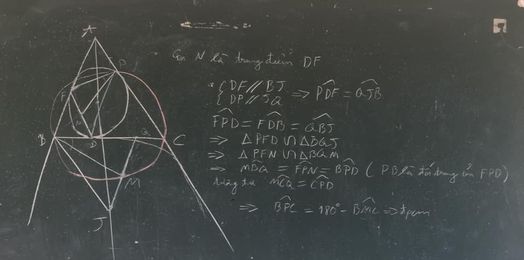 A
P
F
N
B
D
Q
C
M
J
Gọi N là trung điểm DF
{ DF // BJ
{ DP // JQ ⇒ \widehat{PDF} = \widehat{QJB}
\widehat{FPD} = \widehat{FDB} = \widehat{QBJ}
⇒ △PFD ∽ △BQJ
⇒ △PFN ∽ △BQM
⇒ \widehat{MBQ} = \widehat{FPN} = \widehat{BPD} ( PB là đối trung của FPD)
tương tự \widehat{MCQ} = \widehat{CPD}
⇒ \widehat{BPC} = 180° - \widehat{BMC} ⇒ đpcm